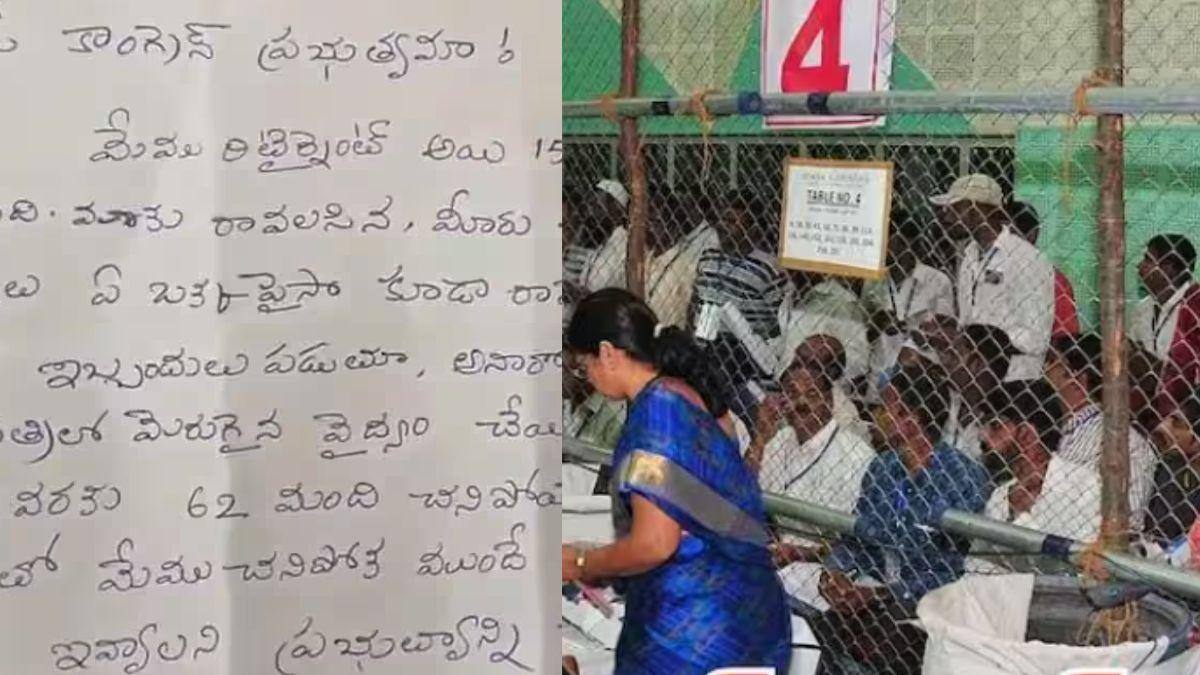 కాంగ్రెస్ ప్రభుత్వమా!
మేము రిటైర్మెంట్ అయి 15
ది. మాకు రావలసిన, మీరు
లు ఏ ఒక్క పైసా కూడా రా
ఇబ్బందులు పడుతూ, అనారో
త్రిలో మెరుగైన వైద్యం చేయి
వరకు 62 మంది చనిపోయి
లో మేము చనిపోక ముందే
ఇవ్వాలని ప్రభుత్వాన్ని
4
TABLE NO. 4